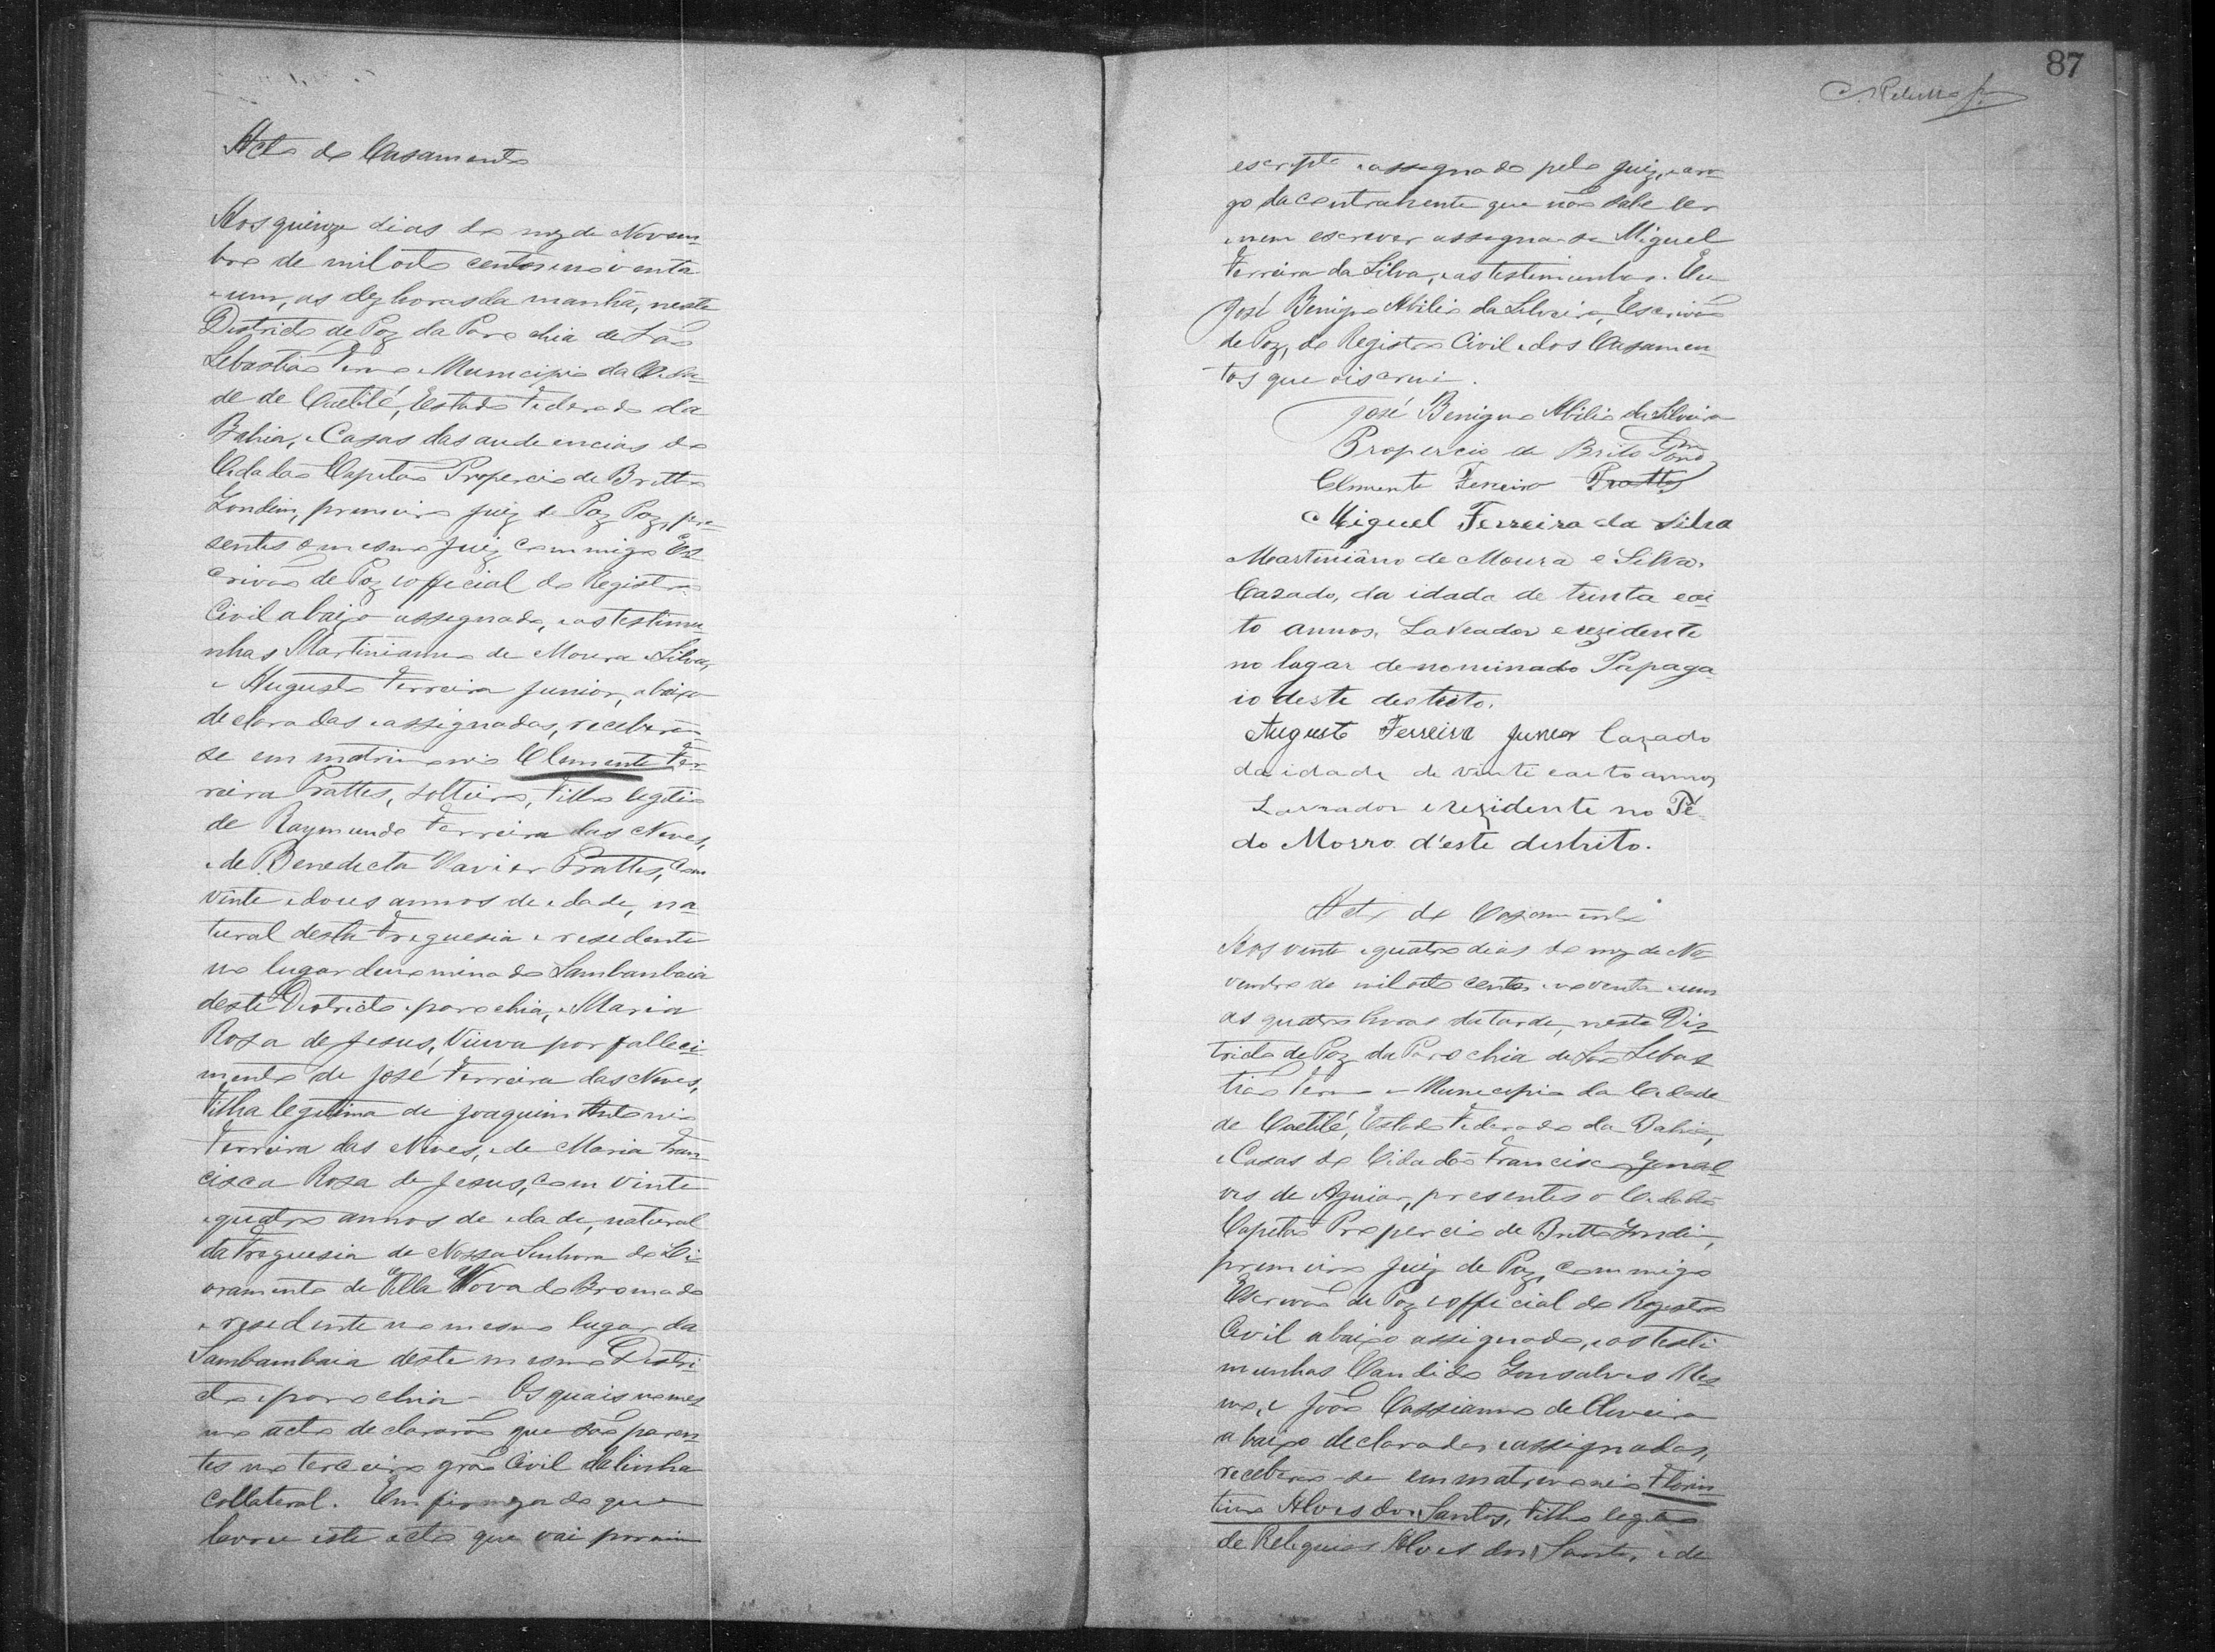 Acto de Casamento
Aos quinze dias do mez de Novem-
bro de mil oito centos e noventa
e um, as dez horas da manhã, neste
Districto de Paz da Parochia de São
Sebastião Termo e Municipio da Cida-
de de Caetité, Estado Federado da
Bahia, e Casas das audiencias do
Cidadão Capitão Propercio de Britto
Gondim, primeiro Juiz de Paz Paz, pre-
sentes o mesmo Juiz commigo Es-
crivão de Paz e official do Registro
Civil abaixo assignado, e as testimu-
nhas Martinianno de Moura e Silva,
e Augusto Ferreira Junior, abaixo
declaradas e assignadas, receberão-
se em matrimonio Clemente Fer-
reira Prattes, solteiro, Filho legitio
de Raymundo Ferreira das Neves,
e de Benedicta Xavier Prattes, com
vinte e dous annos de edade, na-
tural desta Freguesia e residente
no lugar denominado Sambanbaia
deste Districto e parochia, e Maria
Rosa de Jesus, Viuva por falleci-
mento de José Ferreira das Neves,
Filha legitima de Joaquim Antonio
Ferreira das Neves, e de Maria Fran-
cisca Rosa de Jesus, com vinte
e quatro annos de edade, natural
da Freguesia de Nossa Senhora do Li-
vramento de Villa Nova do Bromado
e residente no mesmo lugar da
Sambambaia deste mesmo Distri-
cto e parochia - Os quais no mes-
mo acto declararão que são paren-
tes no terceiro gráo Civil da linha
Collateral. Em firmeza do que
lavrei este acto que vai por mim
87
escripto e assegnado pelo Juiz, e arro-
go da contrahente que não sabe ler
e nem escrever assegna-se Miguel
Ferreira da Silva, e as testimunhas. Eu
José Benigno Abilio da Silveira, Escrivão
de Paz, do Registro Civil e dos Casamen-
tos que o iscrevi.
José Benigno Abilio da Silveira
Propercio de Brito Gond
Clemente Ferreira Prattes
Miguel Ferreira da Silva
Martiniãno de Moura e Silva.
Cazado, da idada de trinta e oi-
to annos, Lavrador e rezidente
no lugar denominado Papaga
io deste destrito.
Augusto Ferreira Junior Cazado
da idade de vinte e oito annos
Lavrador e rezidente no Pé
do Morro d'este distrito.
Acto de Casamento
Aos vinte e quatro dias do mez de No-
vembro de mil oito centos e noventa e um
as quatro horas da tarde, neste Dis-
tricto de Paz da Parochia de São Sebas-
tião Termo e Municipio da Cidade
de Caetité, Estado Federado da Bahia,
e Casas do Cidadão Francisco Gonsal-
ves de Aguiar, presentes o Cidadão
Capitão Propercio de Britto Gondim,
primeiro Juiz de Paz, commigo
Escrivão de Paz e official do Registro
Civil abaixo assignado, e as testi-
munhas Candido Gonsalves
e João Cassianno de Oliveira
abaixo declaradas e assignadas,
receberão-se em matrimonio Floren-
tino Alves dos Santos, Filho legitio
de Reliquias Alves dos Santos, e de